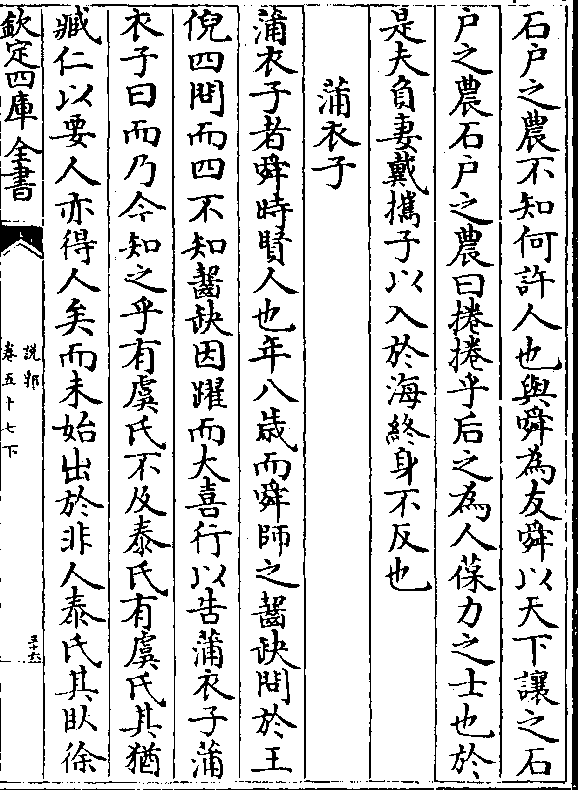 石户之農不知何許人也與舜為友舜以天下讓之石
户之農石户之農曰捲捲乎后之為人葆力之士也於
是夫負妻戴攜子以入於海終身不反也
蒲衣子
蒲衣子者舜時賢人也年八歲而舜師之齧缺問於王
倪四問而四不知齧缺因躍而大喜行以告蒲衣子蒲
衣子曰而乃今知之乎有虞氏不及泰氏有虞氏其猶
臧仁以要人亦得人矣而未始出於非人泰氏其臥徐
欽定四庫全書
說郛
卷五十七下